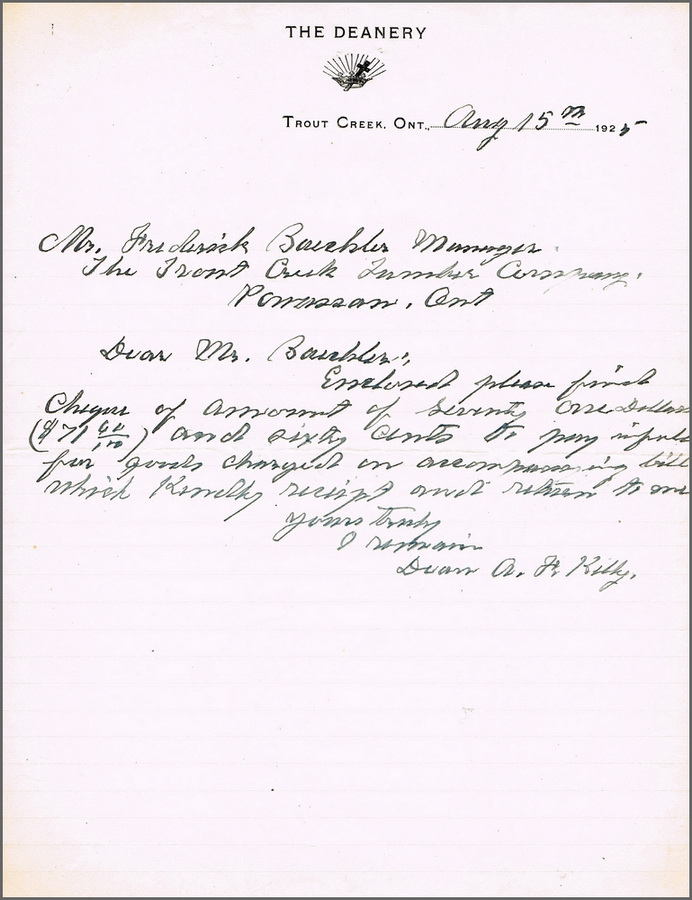 THE DEANERY
TROUT CREEK, ONT., Aug 15th 1925
Mr. Frederick Baechler Manager.
The Trout Creek Lumber Company.
Powassan, Ont
Dear Mr. Baechler:,
Enclosed please find
Cheque of amount of seventy one Dollars
($71 60/100) and sixty cents to pay in full
for goods charged on accompanying bill
which Kindly receipt and return to me
yours truly
I remain
Dean A. H. Kelly.